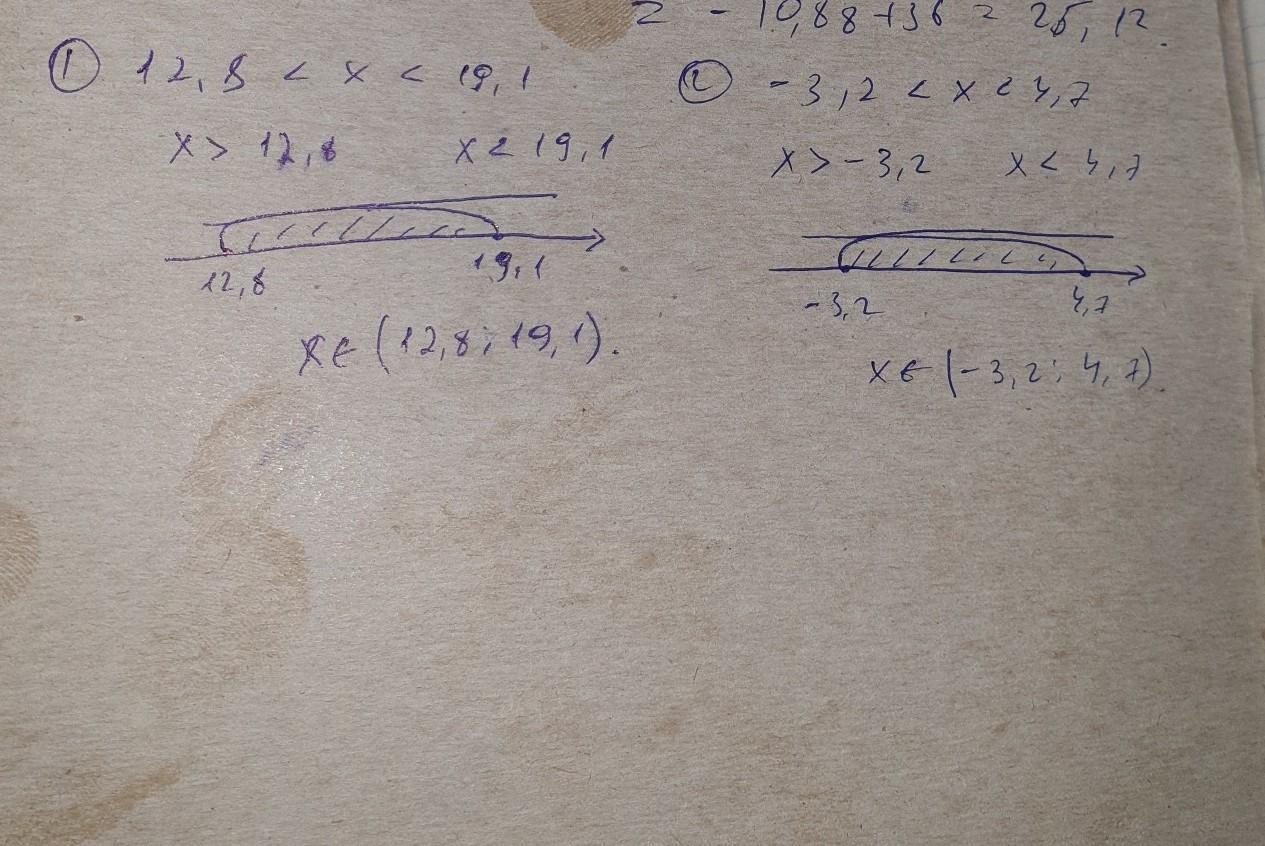 = -10,88+36 = 25,12.
① 12,8 < x < 19,1
x > 12,8 x < 19,1
12,8 19,1
x ∈ (12,8; 19,1).
② -3,2 < x < 4,7
x > -3,2 x < 4,7
-3,2 4,7
x ∈ (-3,2; 4,7).